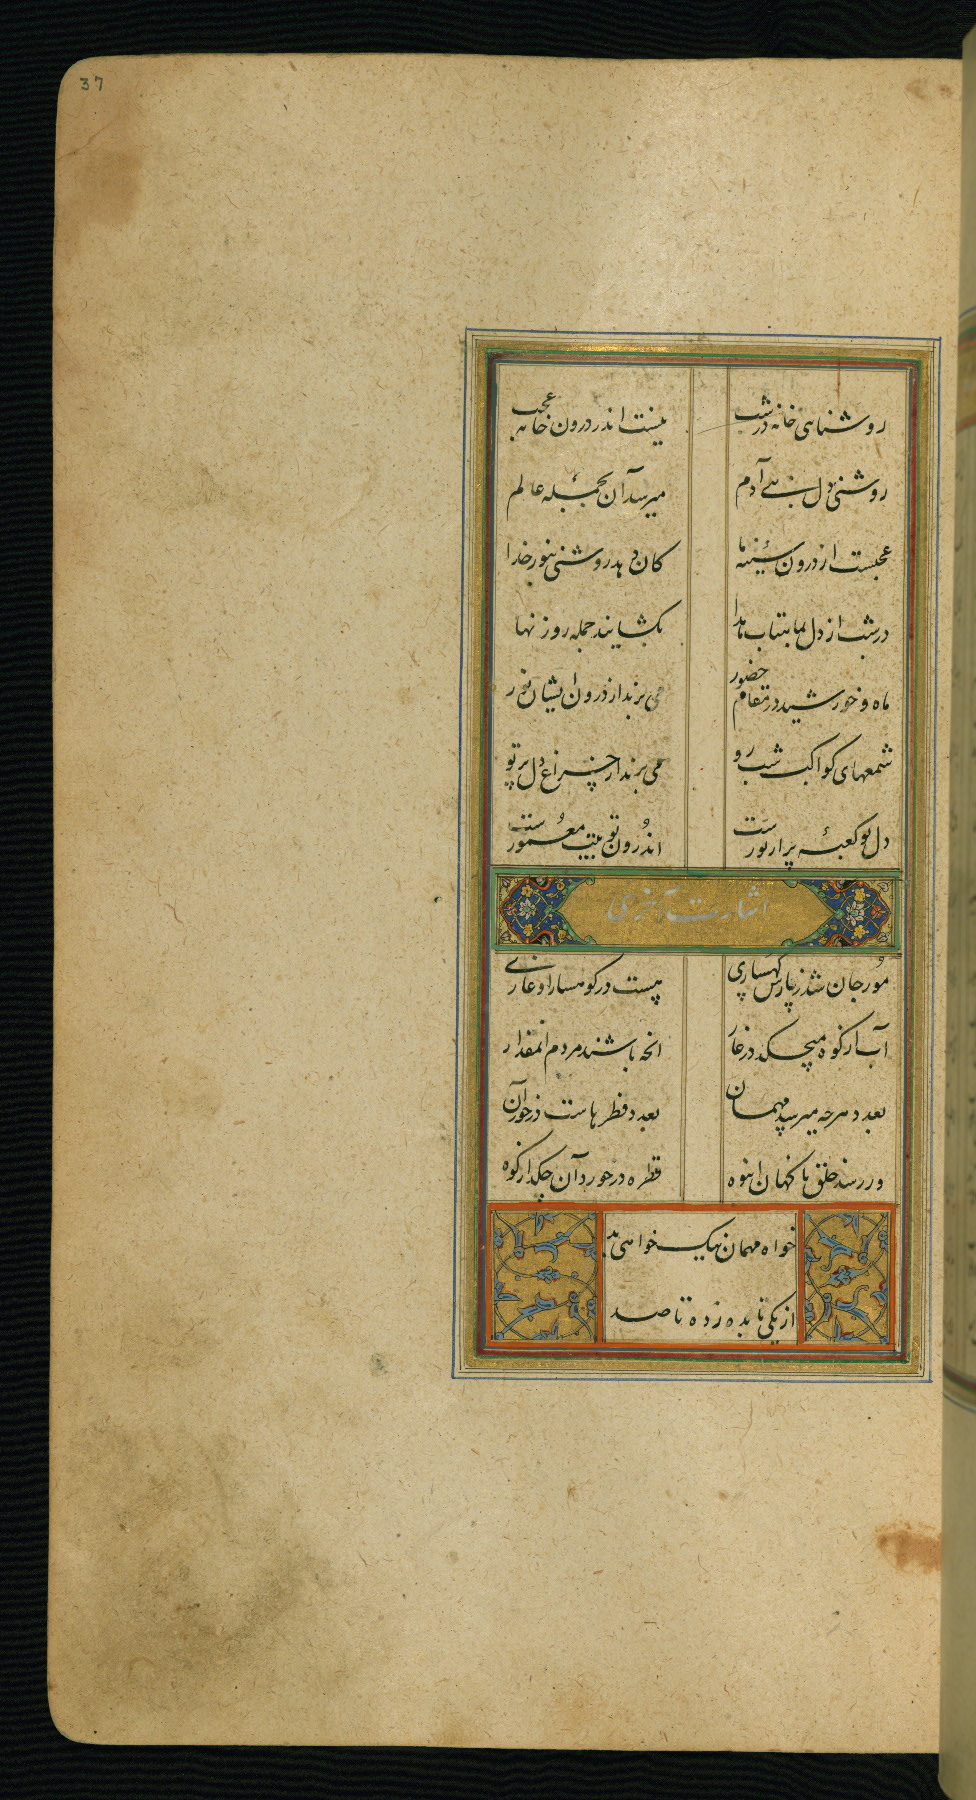 37
روشنایی خانه در شب نیست اندر درون خانه عجب
روشنی دل بنی آدم میرسد آن بجمله عالم
عجبست از درون سینه ما کان دهد روشنی بنور خدا
در شب از دل بماهتاب بکشایند جمله روزنها
ماه و خورشید در مقام حضور می برند از درون ایشان نور
شمعهای کواکب شب رو می برند از چراغ دل پرتو
دل تو کعبه پر از نورست اندرون تو بیت معمورست
اشارت آخری
جان شد ز پارس کهساری هست در کوهسار او غاری
آب از کوه میچکد در غار آنچه باشند مردم آنمقدار
بعدد هرچه میرسد مهمان بعدد قطرهاست در خور آن
ور رسد خلق ناگهان انبوه قطره در خورد آن چکد از کوه
خواه مهمان یک خواهی
از یکی تا بده ز ده تا صد